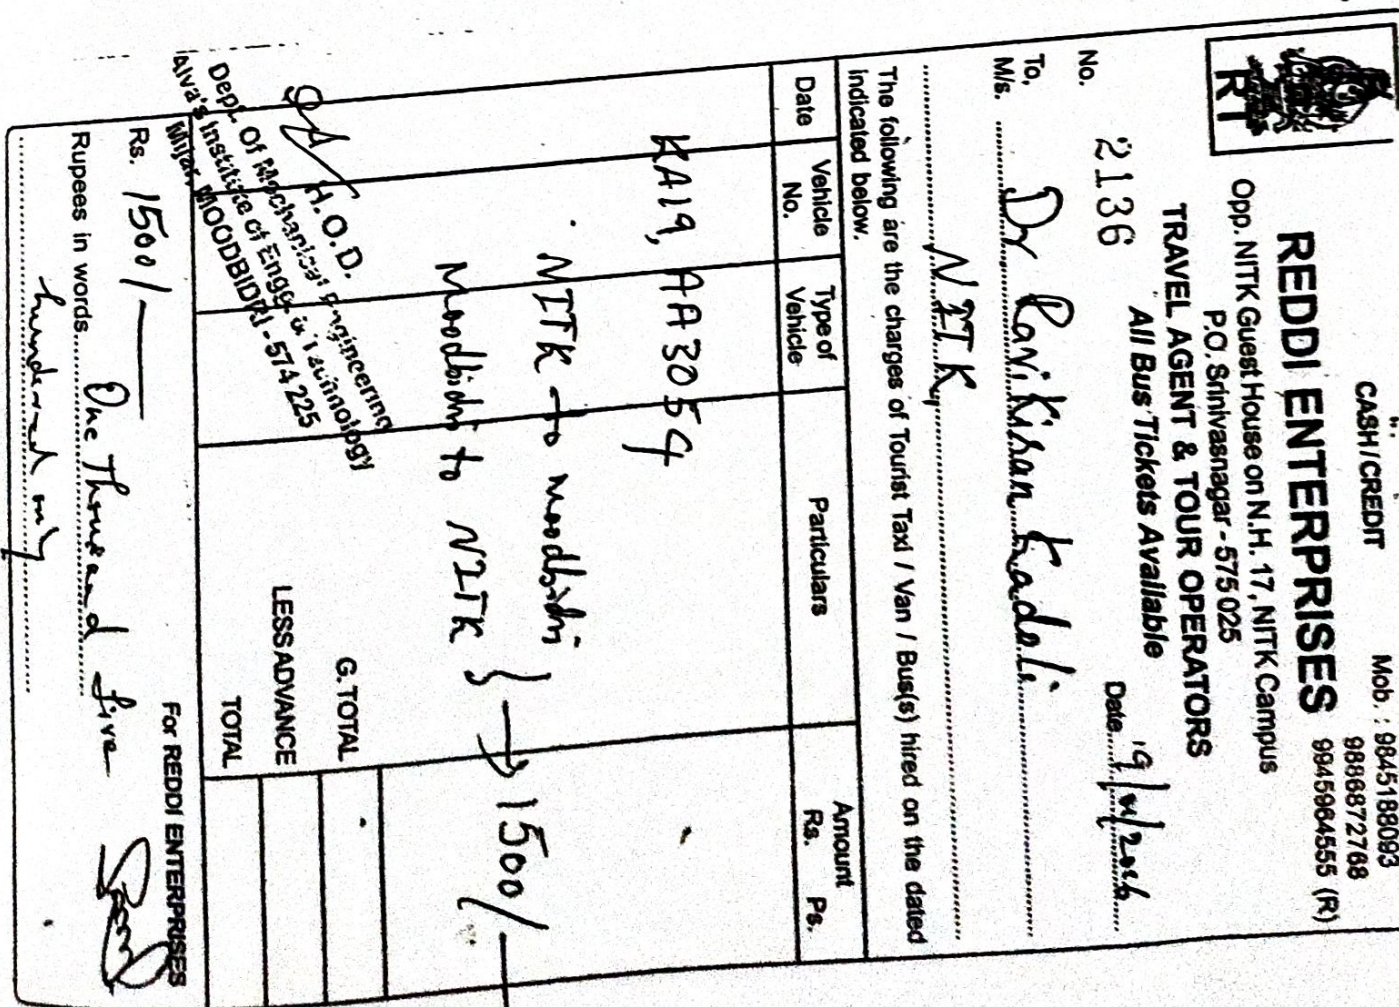 CASH / CREDIT
Mob. : 9845188093
9886872768
9945964555 (R)
RT
REDDI ENTERPRISES
Opp. NITK Guest House on N.H. 17, NITK Campus
P.O. Srinivasnagar - 575 025
TRAVEL AGENT & TOUR OPERATORS
All Bus Tickets Available
No. 2136
Date 19/
To,
M/s. Dr Ravikiran Kadoli
NITK
The following are the charges of Tourist Taxi / Van / Bus(s) hired on the dated
indicated below.
Date Vehicle No. Type of Vehicle Particulars Amount Rs. Ps.
KA19, AA3054
NITK to moodbidri
Moodbidri to NITK } → 1500/-
G. TOTAL
LESS ADVANCE
TOTAL
H.O.D.
Dept. Of Mechanical Engineering
Alva's Institute of Engg. & Technology
Mijar, MOODBIDRI - 574 225
For REDDI ENTERPRISES
Rs. 1500/-
Rupees in words One Thousand five
hundered only